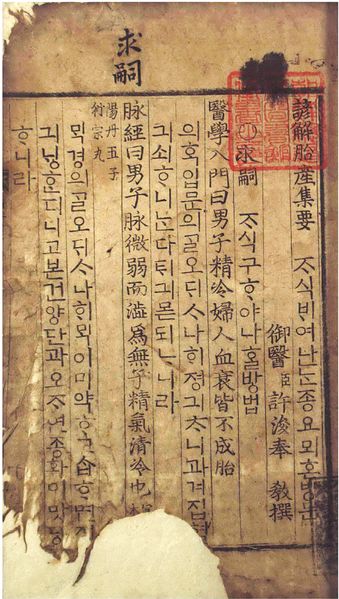 求嗣
諺解胎産集要 ᄌᆞ식ᄇᆡ여난ᄂᆞᆫ종요모혼방문
御醫臣許浚奉 教撰
求嗣 ᄌᆞ식구ᄒᆞ야나홀방법
醫學入門曰男子精冷婦人血衰皆不成胎
의ᄒᆞᆨ입문의ᄀᆞᆯ오ᄃᆡᄉᆞ나ᄒᆡ졍긔ᄎᆞ니과겨집
긔쇠ᄒᆞ니ᄂᆞᆫ다ᄐᆡ긔몯되ᄂᆞ니라
脉經曰男子脉微弱而濇爲無子精氣清冷也
陽丹五子
衍宗丸
ᄆᆡᆨ경의ᄀᆞᆯ오ᄃᆡᄉᆞ나ᄒᆡᄆᆡᆨ이미약ᄒᆞ고ᄉᆞᆸᄒᆞ면
긔닝ᄒᆞᆫ디니고본건양단과오ᄌᆞ연종환이맛당
ᄒᆞ니라